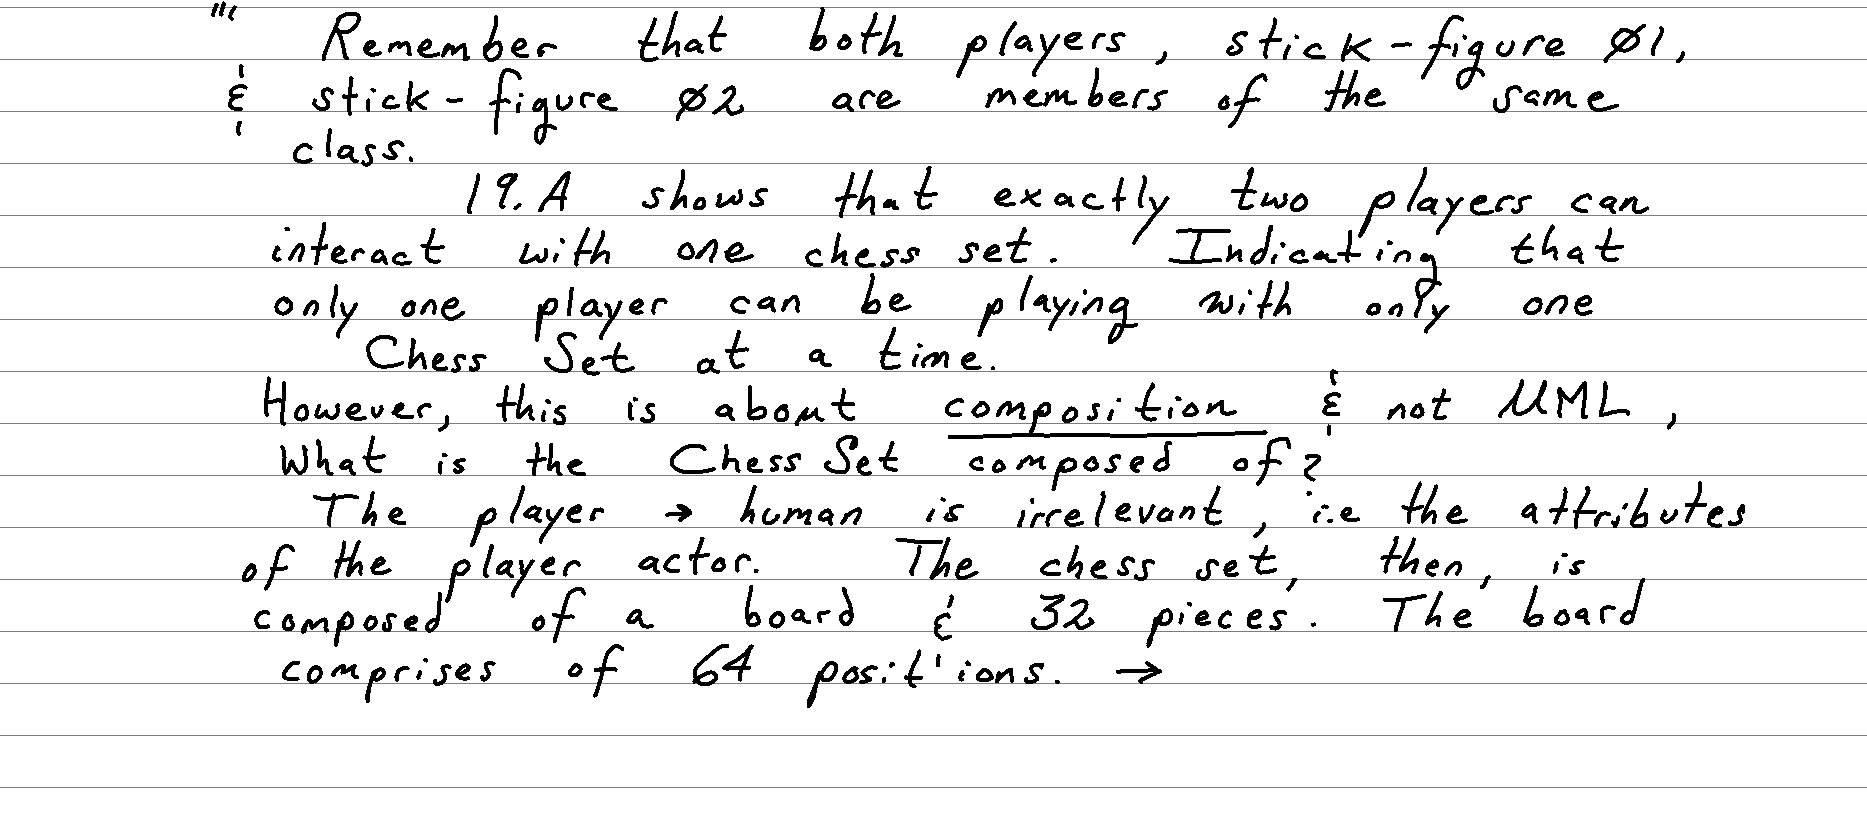 "' Remember that both players, stick-figure Ø1,
& stick-figure Ø2 are members of the same
class.
19.A shows that exactly two players can
interact with one chess set. Indicating that
only one player can be playing with only one
Chess Set at a time.
However, this is about composition & not UML,
What is the Chess Set composed of?
The player → human is irrelevant, i.e the attributes
of the player actor. The chess set, then, is
composed of a board & 32 pieces. The board
comprises of 64 posit'ions. →